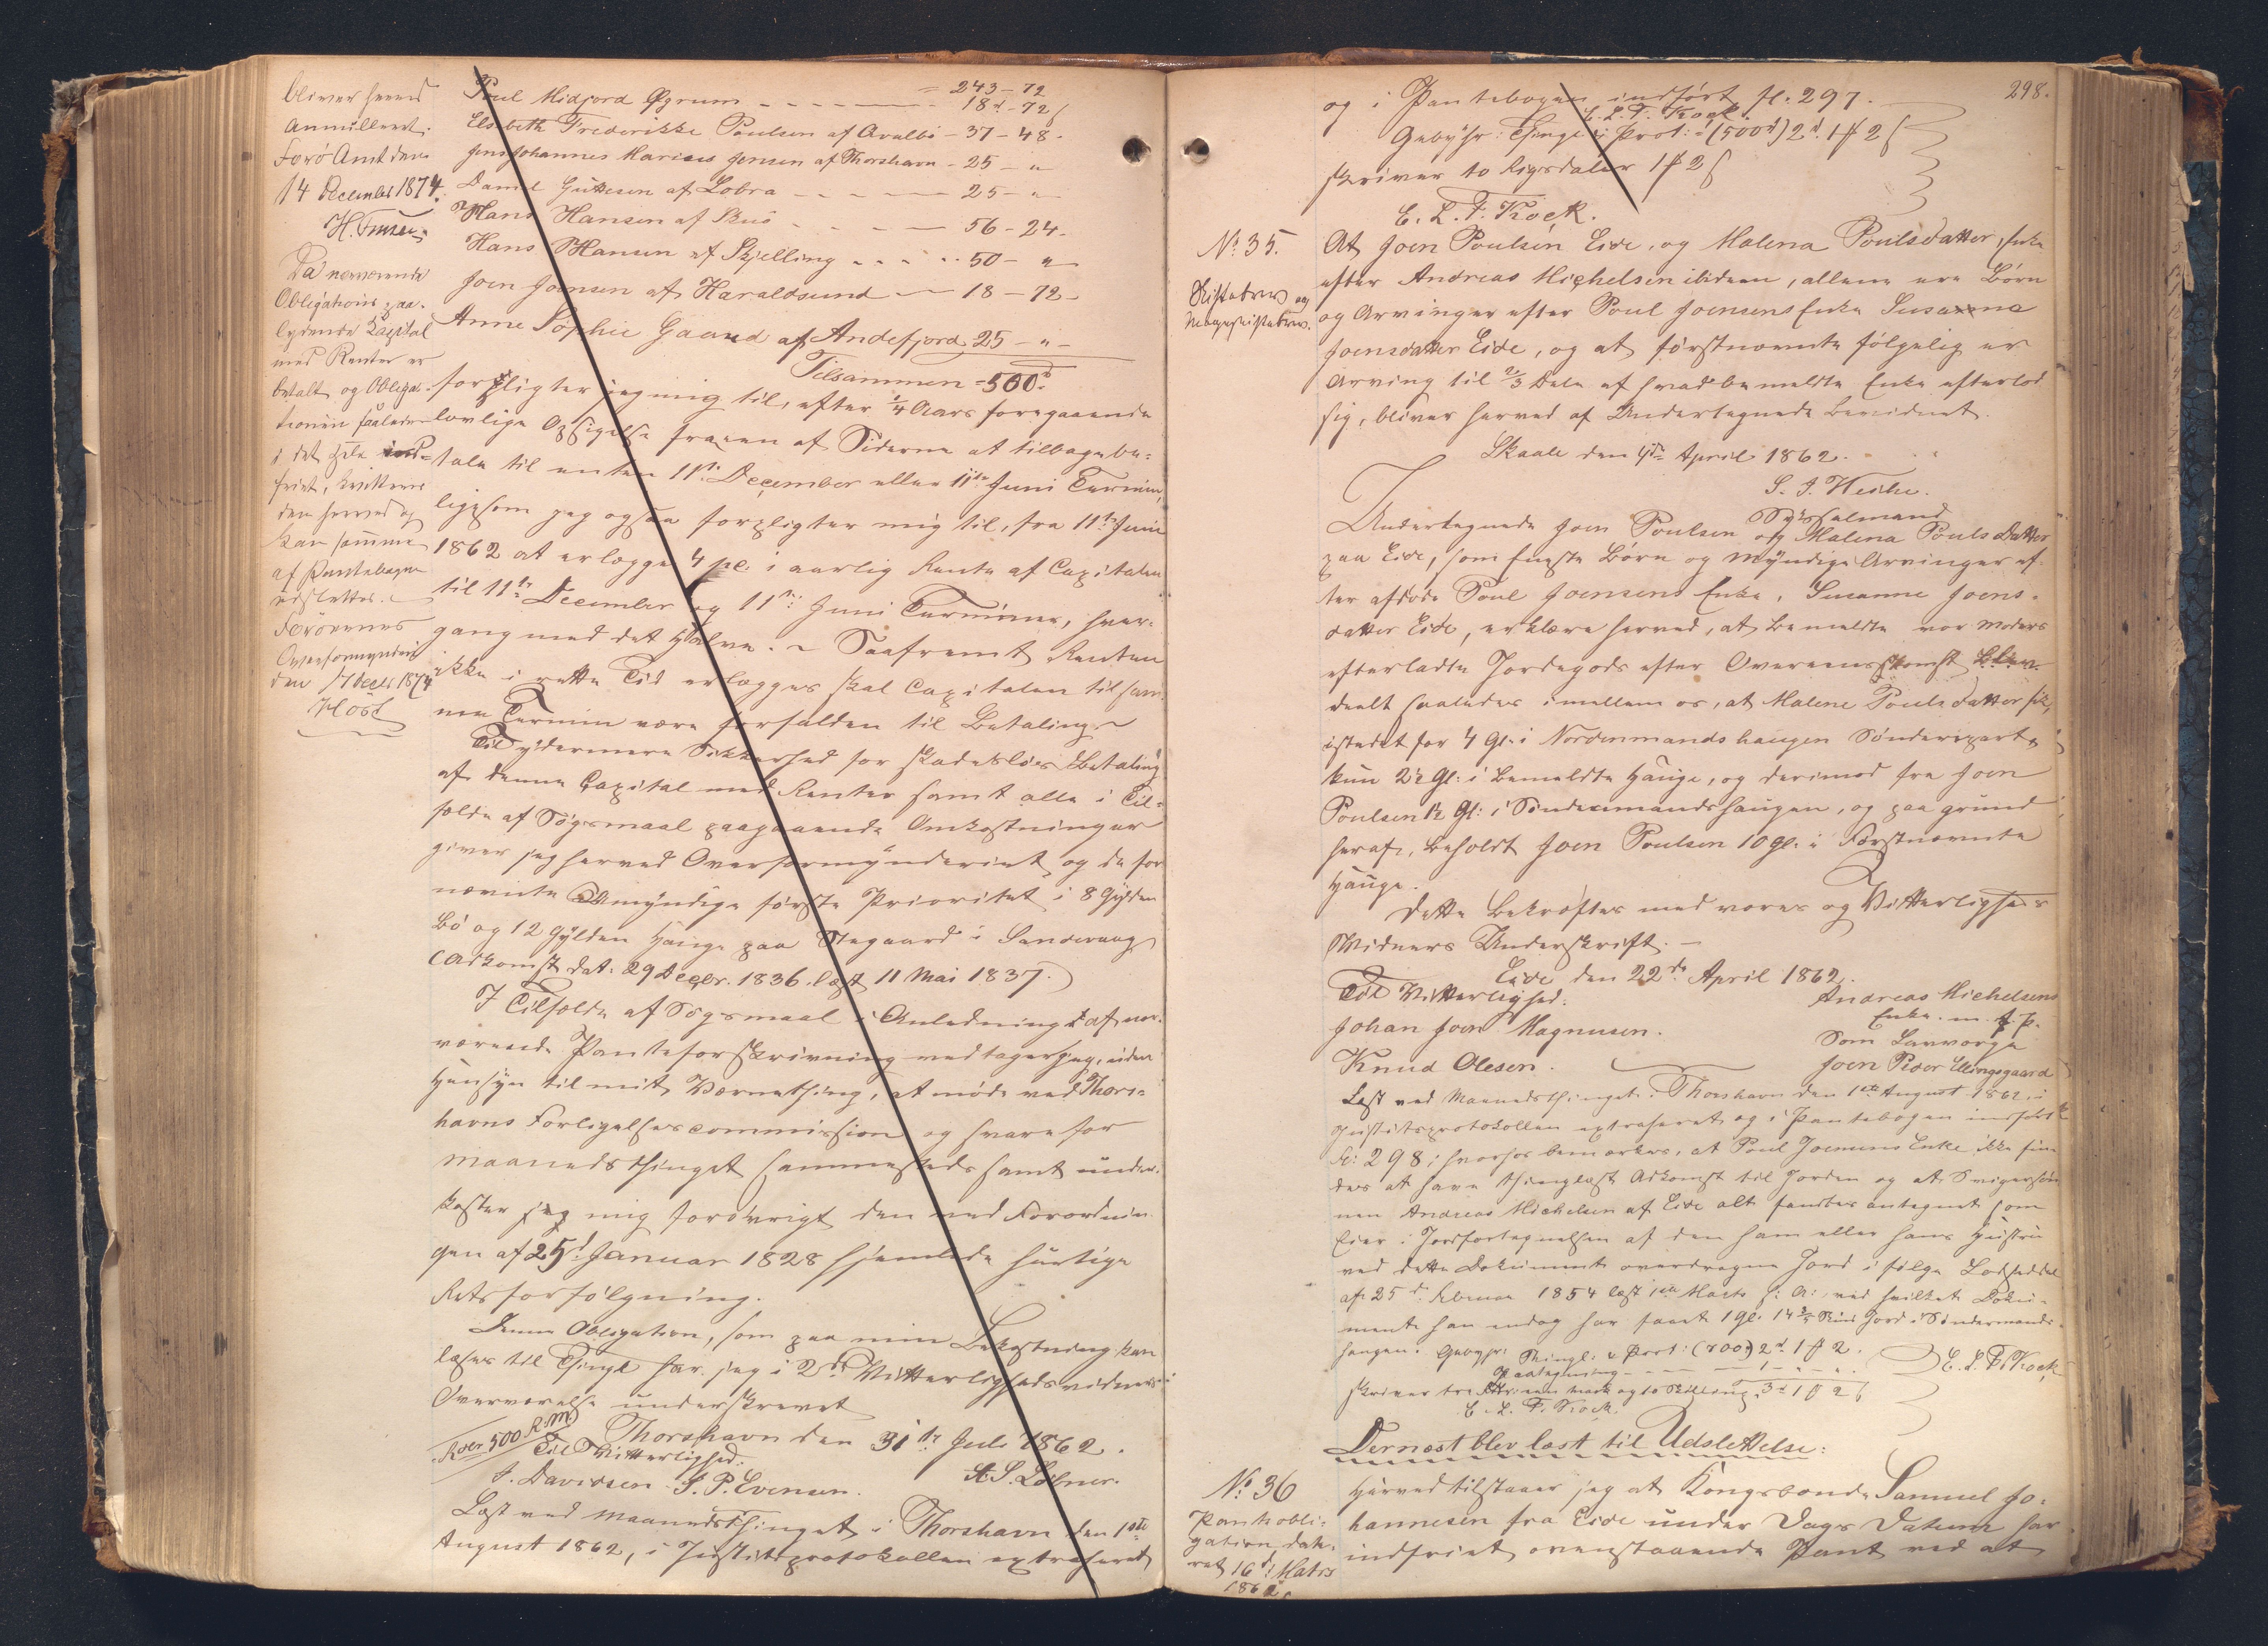 bliver herved
annulleret.
Færø Amt den
14 December 1874.
H. Finsen
Da nærværende
Obligations paa-
lydende Kapital
med Renter er
betalt og Obliga-
tionen saaledes
i det Hele ind-
friet, kvitteres
den herved og
kan samme
af Pantebogen
udslettes.
Færøernes
Overformynderi
den 17 Decbr 1874
Høst
Poul Midjord Øgrum - - - = 243 - 72
18 d - 72 ß
Elsebeth Frederikke Poulsen af Qvalbø - 37 - 48 -
Jens Johannes Marius Jensen af Thorshavn - 25 - "
Daniel Guttesen af Lobra - - - 25 - "
Hans Hansen af Skuø - - - - 56 - 24 -
Hans Hansen af Skjelling - - - - 50 - "
Joen Joensen af Haraldsund - - 18 - 72 -
Anne Sophie Gaard af Andefjord 25 - " -
Tilsammen = 500 d
forpligter jeg mig til, efter 1/4 Aars foregaaende
lovlige Opsigelse fra en af Siderne at tilbagebe-
tale til enten 11te December eller 11te Juni Termin,
ligesom jeg ogsaa forpligter mig til, fra 11te Juni
1862 at erlægge 4 pC. i aarlig Rente af Capitalen
til 11te December og 11te Juni Terminer, hver-
gang med det Halve. - Saafremt Renten
ikke i rette Tid erlægges skal Capitalen til sam-
me Termin være forfalden til Betaling. -
Til ydermere Sikkerhed for skadesløs Betaling
af denne Capital med Renter samt alle i Til-
fælde af Søgsmaal paagaaende Omkostninger
giver jeg herved Overformynderiet og de for-
nævnte Umyndige første Prioritet i 8 Gylden
Bø og 12 Gylden Hauge paa Stegaard i Sandevaag
(Adkomst dat. 29 Decbr. 1836. læst 11 Mai 1837.)
I Tilfælde af Søgsmaal i Anledning af nær-
værende Panteforskrivning vedtager jeg, uden
Hensyn til mit Værnething, at møde ved Thors-
havns Forligelsescommission og svare for
Maanedsthinget sammesteds samt under-
kaster jeg mig forøvrigt den ved Forordnin-
gen af 25d Januar 1828 hjemlede hurtige
Retsforfølgning.
Denne Obligation, som paa min Bekostning kan
læses til Thinge har jeg i 2de Vitterlighedsvidners
Overværelse underskrevet
Rder 500 R.M.
Thorshavn den 31te Juli 1862.
Til Vitterlighed.
A. S. Løbner.
J. Davidsen J. P. Evensen.
Læst ved Maanedsthinget i Thorshavn den 1ste
August 1862, i Justitsprotokollen extraheret
298.
og i Pantebogen indført fl. 297.
E. L. T. Kock.
Gebyhr: Thingl: i Prot: (500 d) 2 d. 1 # 2 ß
skriver to Rigsdaler 1 # 2 ß
E. L. T. Kock.
No. 35.
Skiftebrev og
Mageskiftebrev.
At Joen Poulsen Eide, og Malena Poulsdatter, Enke
efter Andreas Michelsen ibidem, allene ere Børn
og Arvinger efter Poul Joensens Enke Susanna
Joensdatter Eide, og at førstnævnte følgelig er
Arving til 2/3 Dele af hvad bemeldte Enke efterlod
sig, bliver herved af Undertegnede bevidnet.
Skaale den 4de April 1862.
S. J. Weihe.
Sysselmand
Undertegnede Joen Poulsen og Malena Pouls Datter
paa Eide, som eneste Børn og myndige Arvinger ef-
ter afdøde Poul Joensens Enke, Susanne Joens-
datter Eide, erklære herved, at bemeldte vor Moders
efterladte Jordegods efter Overeenskomst blev
deelt saaledes imellem os, at Malene Pouls datter fik,
istedet for 4 Gl: i Nordenmandshaugen Sønderpart
kun 2½ Gl: i bemeldte Hauge, og derimod fra Joen
Poulsen 1½ Gl: i Søndenmandshaugen, og paa grund
heraf, beholdt Joen Poulsen 10 gl. i Førstnævnte
Hauge.
Dette bekræftes med vores og Vitterligheds
Vidners Underskrift. -
Eide den 22de April 1862.
Til Vitterlighed:
Andreas Michelsens
Enke. m. f. P.
Johan Joen Magnusen.
Som Lavværge
Knud Olesen.
Joen Peder Ellingsgaard
Læst ved Maanedsthinget i Thorshavn den 1ste August 1862, i
Justitsprotokollen extraheret og i Pantebogen indført
fl: 298; hvorfor bemærkes, at Poul Joensens Enke ikke fin-
des at have thinglæst Adkomst til Jorden og at Svigersøn-
nen Andreas Michelsen af Eide alt fandtes antegnet som
Eier i Jordfortegnelsen af den ham eller hans Hustru
ved dette Dokument overdragne Jord i følge Lodseddel
af 25d. Februar 1854 læst 1ste Marts s: A:, ved hvilket Doku-
ment han endog har faaet 1 gl. 14 2/5 Skind Jord i Søndermands-
haugen. Gebyhr: Thingl: i Prot: (700) 2 d 1 # 2.
Paategning - - - 1 - " - "
E. L. T. Kock
skriver tre Rdlr: een Mark og to Skilling 3 d 1 # 2 ß
E. L. T. Kock
Dernæst blev læst til Udslettelse:
No. 36
Pantobli-
gation date-
ret 16d. Marts
1862.
Herved tilstaaer jeg at Kongsbonde Samuel Jo-
hannesen fra Eide under Dags Datum har
indfriet ovenstaaende Pant ved at